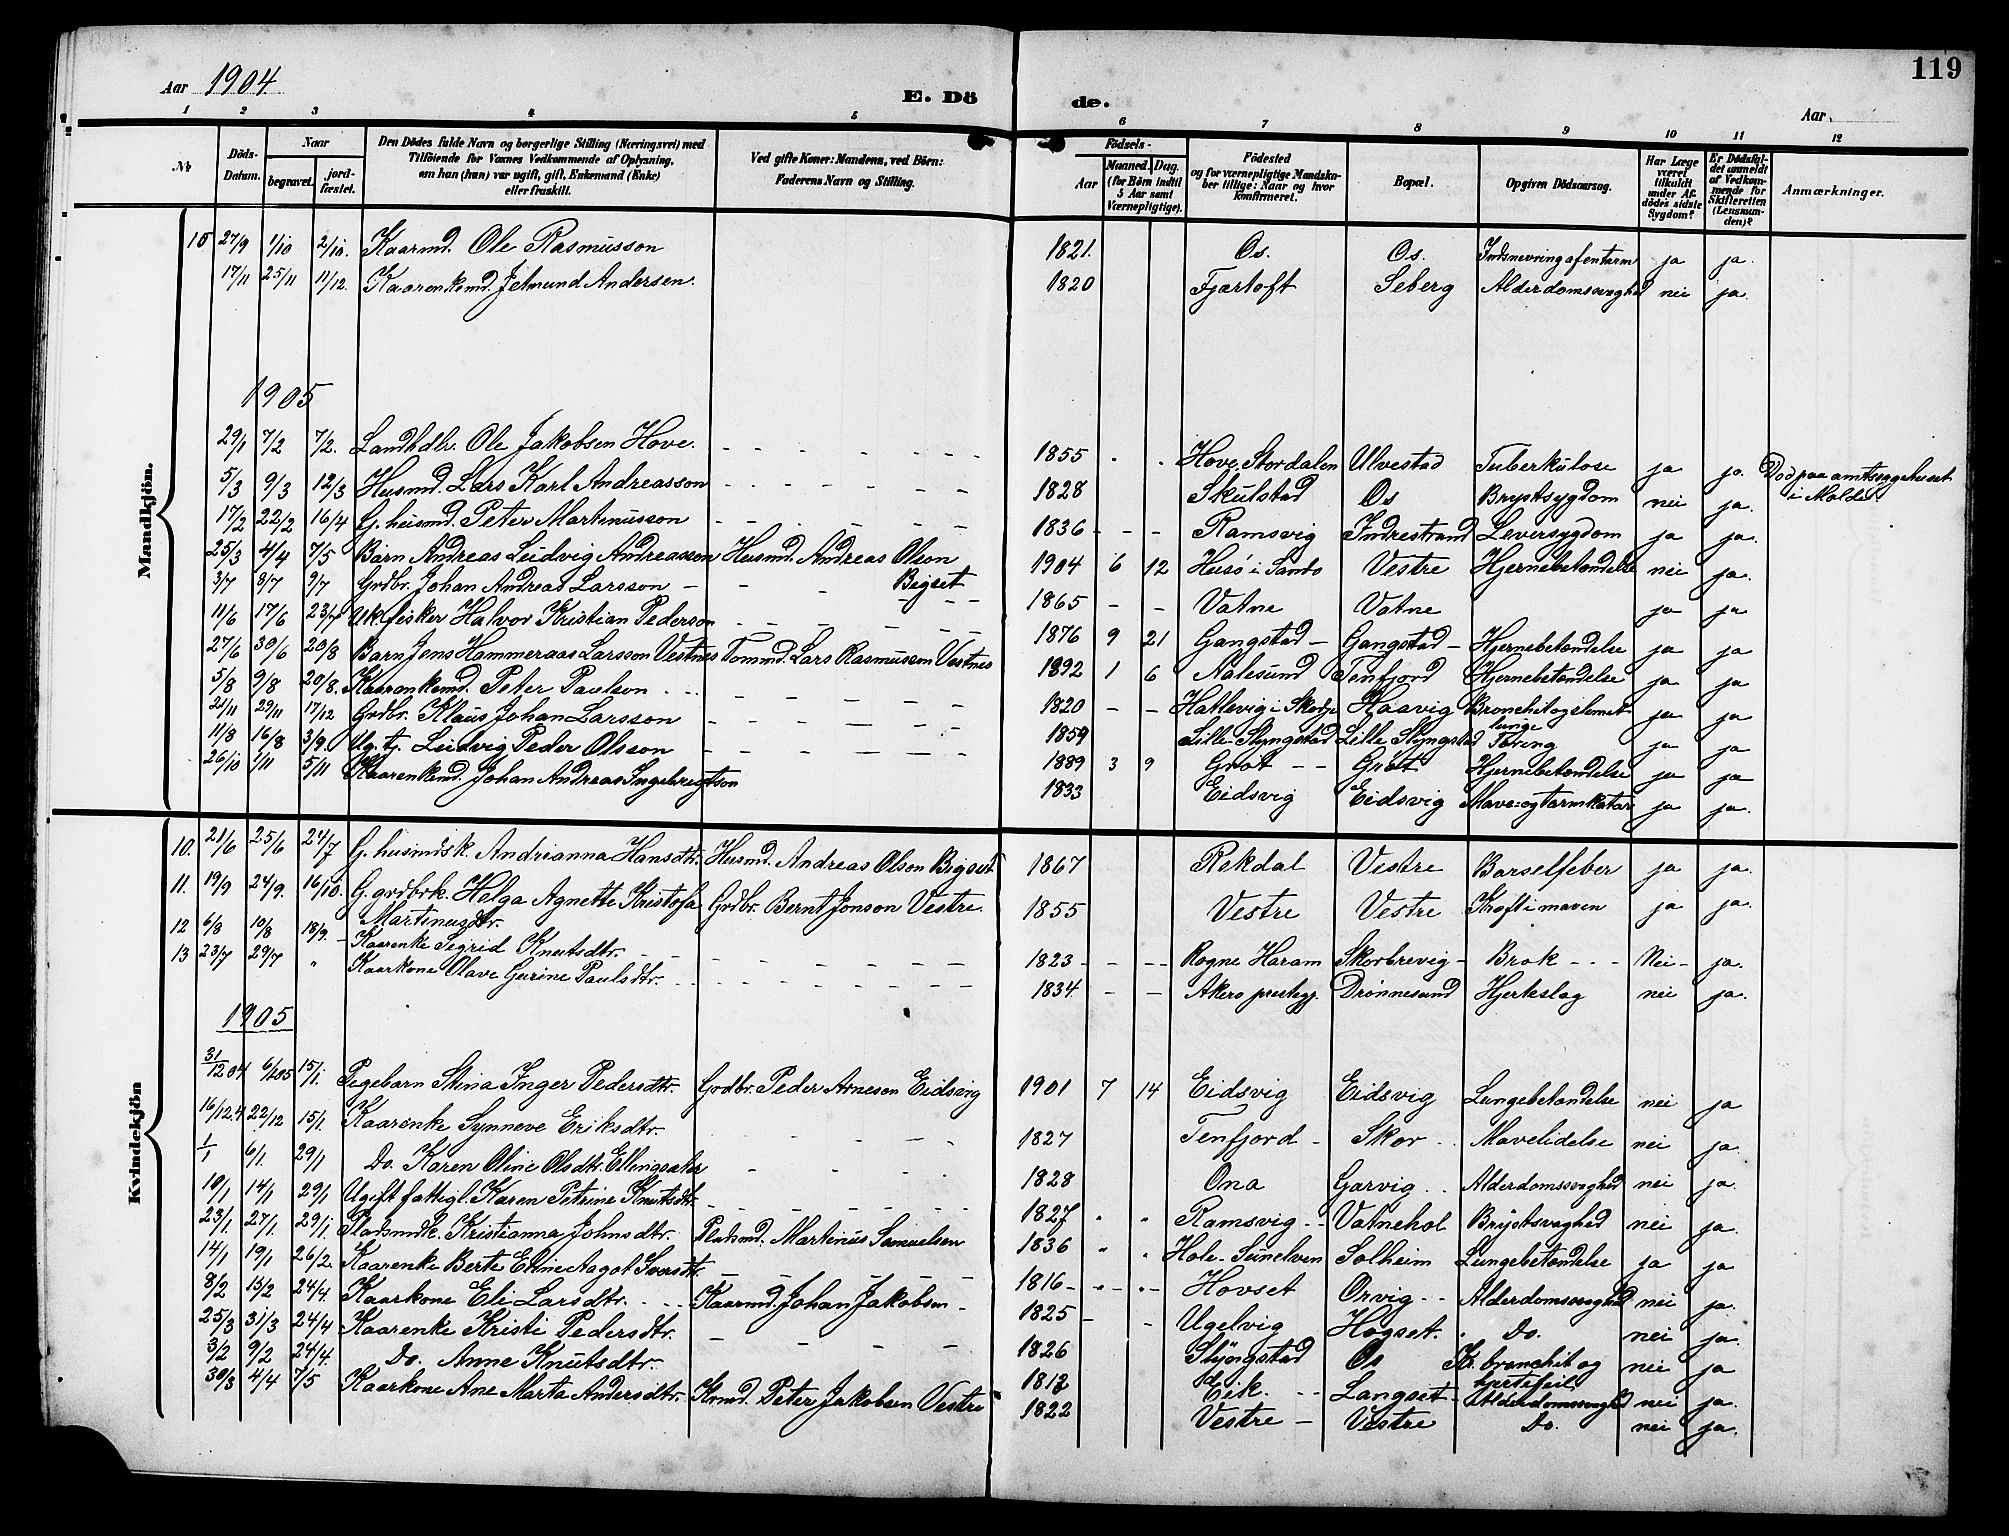 119
Aar 1904
E. Döde.
Aar
1 2 3 4 5 6 7 8 9 10 11 12
№
Döds-Datum.
Naar
begravet.
jordfæstet.
Den Dödes fulde Navn og borgerlige Stilling (Næringsvei) med
Tilföiende for Vaxnes Vedkommende af Oplysning,
om han (hun) var ugift, gift, Enkemand (Enke)
eller fraskilt.
Ved gifte Koner: Mandens, ved Börn:
Faderens Navn og Stilling.
Födsels-
Aar
Maaned. Dag.
(for Börn indtil
5 Aar samt
Værnepligtige).
Födested
og for værnepligtige Mandskaber tillige: Naar og hvor
konfirmeret.
Bopæl.
Opgiven Dödsaarsag.
Har Læge
været
tilkaldt
under Afdödes sidste
Sygdom?
Er Dödsfaldet anmeldt
af Vedkommende for
Skifteretten
(Lensmanden)?
Anmærkninger.
Mandkjön.
15 27/9 1/10 2/10. Kaarmd. Ole Rasmusson 1821. Os. Os. Indsnevring af en tarm ja ja.
17/11 25/11 11/12. Kaarenkemd. Jetmund Andersen. 1820 Fjærtoft Seberg Alderdomssvaghed nei ja.
1905
29/1 7/2 7/2. Landhdlr. Ole Jakobsen Hove. 1855 Hove, Stordalen Ulvestad Tuberkulose ja ja. Död paa amtssygehuset i Molde.
5/3 9/3 12/3 Husmd. Lars Karl Andreasson 1828 Skulstad Os Brystsygdom nei ja.
17/2 22/2 16/4 G. husmd. Peter Martinusson 1836 Ramsvig Indrestrand Leversygdom ja ja.
25/3 4/4 7/5 Barn Andreas Ludvig Andreasson Husmd. Andreas Olson Bigset 1904 6 12 Husö i Sandö Vestre Hjernebetændelse nei ja.
3/7 8/7 9/7 Grdbr. Johan Andreas Larsson 1865 Vatne Vatne ja ja
11/6 17/6 23/7 Uk. fisker Halvor Kristian Pederson 1876 9 21 Gangstad Gangstad Hjernebetændelse ja ja
27/6 30/6 20/8 Barn Jens Hammeraas Larsson Vestnes Tommd. Lars Rasmusson Vestnes 1892 1 6 Aalesund Tenfjord Hjernebetændelse ja ja
5/8 9/8 20/8. Kaarenkemd. Peter Paulson 1820 Hatlevig i Skodje Haavig Bronchit og lunge ja ja
21/11 29/11 17/12 Grdbr. Klaus Johan Larsson 1859 Lille Slyngstad Lille Slyngstad Tæring ja ja
11/8 16/8 3/9. Ug. tj. Ludvig Peder Olsson 1889 3 9 Gröt Gröt Hjernebetændelse ja ja
26/10 1/11 5/11 Kaarenkemd. Johan Andreas Ingebregtson 1833 Eidsvig Eidsvig Mave- og tarmkatar ja ja.
Kvindekjön
10. 21/6 25/6 24/7 G. husmdsk. Andrianna Hansdtr. Husmd. Andreas Olson Bigset 1867 Rekdal Vestre Barselfeber ja ja.
11. 19/9 24/9. 16/10. G. grdbrk. Helga Agnette Kristofa Martinusdtr. Grdbr. Bernt Jonson Vestre. 1855 Vestre Vestre Kræft i maven ja ja.
12 6/8 10/8 18/9. Kaarenke Sigrid Knutsdtr. 1823 Rogne Haram Skorbrevig Brok Nei ja.
13 23/7 29/7 " Kaarkone Olave Gurine Paulsdtr. 1834. Akerö prestegj. Drönnesund Hjerteslag nei ja.
1905
31/12 04 6/1 05 15/1. Pigebarn Stina Inger Pedersdtr. Grdbr. Peder Arneson Eidsvig 1901 7 14 Eidsvig Eidsvig Lungebetændelse nei ja
16/12.4 22/12 15/1. Kaarenke Synneve Eriksdtr. 1827 Tenfjord Skor Mavelidelse nei ja.
1/1 6/1. 29/1 Do. Karen Oline Olsdtr. Ellingsæter 1828 Ona Garvig Alderdomssvaghed nei ja.
10/1 14/1 29/1 Ugift fattigl. Karen Petrine Knutsdtr. 1827 Ramsvig Vatnehol Brystsvaghed nei ja.
23/1 27/1 29/1 Pladsmdk. Kristianna Johnsdtr. Pladsmd. Martinus Samuelsen 1836 Hole-Sunelven Solheim Lungebetændelse ja ja
14/1 19/1 26/2. Kaarenke Berte Eline Aagot Iversdtr. 1816 Hovset Orvig Alderdomssvaghed nei ja.
8/2 15/2 24/4. Kaarkone Eli Larsdtr. Kaarmd. Johan Jakobsen 1825 Ugelvig Hogset. Do. nei ja.
25/3 31/3 24/4 Kaarenke Kristi Pedersdtr. 1826 Slyngstad Os Kr. bronchit og hjertefeil nei ja
3/2 9/2 24/4. Do. Anne Knutsdtr. 1812 Eik. Langset Alderdomssvaghed nei ja.
30/3 4/4 7/5 Kaarkone Ane Marta Andersdtr. Krmd. Peter Jakobsen Vestre 1822 Vestre Vestre Do. nei ja.